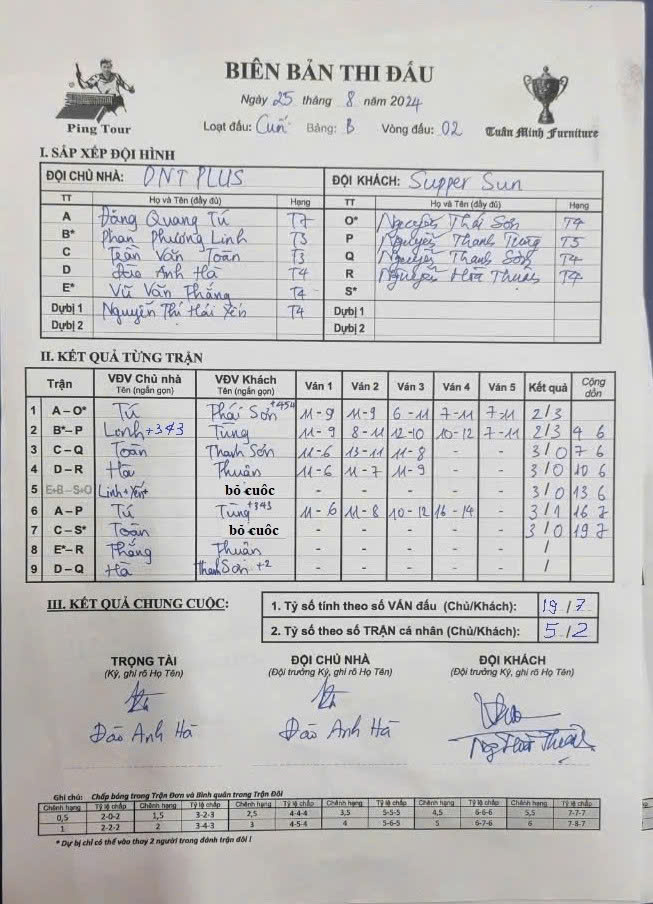 BIÊN BẢN THI ĐẤU
Ngày 25 tháng 8 năm 2024
Ping Tour
Loạt đấu: Cuối Bảng: B Vòng đấu: 02
Tuấn Minh Furniture
I. SẮP XẾP ĐỘI HÌNH
ĐỘI CHỦ NHÀ: DNT PLUS ĐỘI KHÁCH: Supper Sun
TT Họ và Tên (đầy đủ) Hạng TT Họ và Tên (đầy đủ) Hạng
A Đặng Quang Tú T7 O* Nguyễn Thái Sơn T4
B* Phan Phương Linh T3 P Nguyễn Thanh Tùng T5
C Trần Văn Toàn T3 Q Nguyễn Thanh Sơn T4
D Đào Anh Hà T4 R Nguyễn Hòa Thuận T4
E* Vũ Văn Thắng T4 S*
Dự bị 1 Nguyễn Thị Hải Yến T4 Dự bị 1
Dự bị 2 Dự bị 2
II. KẾT QUẢ TỪNG TRẬN
Trận VĐV Chủ nhà Tên (ngắn gọn) VĐV Khách Tên (ngắn gọn) Ván 1 Ván 2 Ván 3 Ván 4 Ván 5 Kết quả Cộng dồn
1 A – O* Tú Thái Sơn +454 11-9 11-9 6-11 7-11 7-11 2/3
2 B*– P Linh +343 Tùng 11-9 8-11 12-10 10-12 7-11 2/3 4 6
3 C – Q Toàn Thanh Sơn 11-6 13-11 11-8 - - 3/0 7 6
4 D – R Hà Thuận 11-6 11-7 11-9 - - 3/0 10 6
5 E+B – S+O Linh+Yến+ bỏ cuôc - - - - - 3/0 13 6
6 A – P Tú Tùng +343 11-6 11-8 10-12 16-14 - 3/1 16 7
7 C – S* Toàn bỏ cuôc - - - - - 3/0 19 7
8 E*– R Thắng Thuân - - - - - /
9 D – Q Hà Thanh Sơn +2 - - - - - /
III. KẾT QUẢ CHUNG CUỘC:
1. Tỷ số tính theo số VÁN đấu (Chủ/Khách): 19/7
2. Tỷ số theo số TRẬN cá nhân (Chủ/Khách): 5/2
TRỌNG TÀI ĐỘI CHỦ NHÀ ĐỘI KHÁCH
(Ký, ghi rõ Họ Tên) (Đội trưởng Ký, ghi rõ Họ Tên) (Đội trưởng Ký, ghi rõ Họ Tên)
Đào Anh Hà Đào Anh Hà
Ghi chú: Chấp bóng trong Trận Đơn và Bình quân trong Trận Đôi
Chênh hạng Tỷ lệ chấp Chênh hạng Tỷ lệ chấp Chênh hạng Tỷ lệ chấp Chênh hạng Tỷ lệ chấp Chênh hạng Tỷ lệ chấp Chênh hạng Tỷ lệ chấp
0,5 2-0-2 1,5 3-2-3 2,5 4-4-4 3,5 5-5-5 4,5 6-6-6 5,5 7-7-7
1 2-2-2 2 3-4-3 3 4-5-4 4 5-6-5 5 6-7-6 6 7-8-7
* Dự bị chỉ có thể vào thay 2 người trong đánh trận đôi !